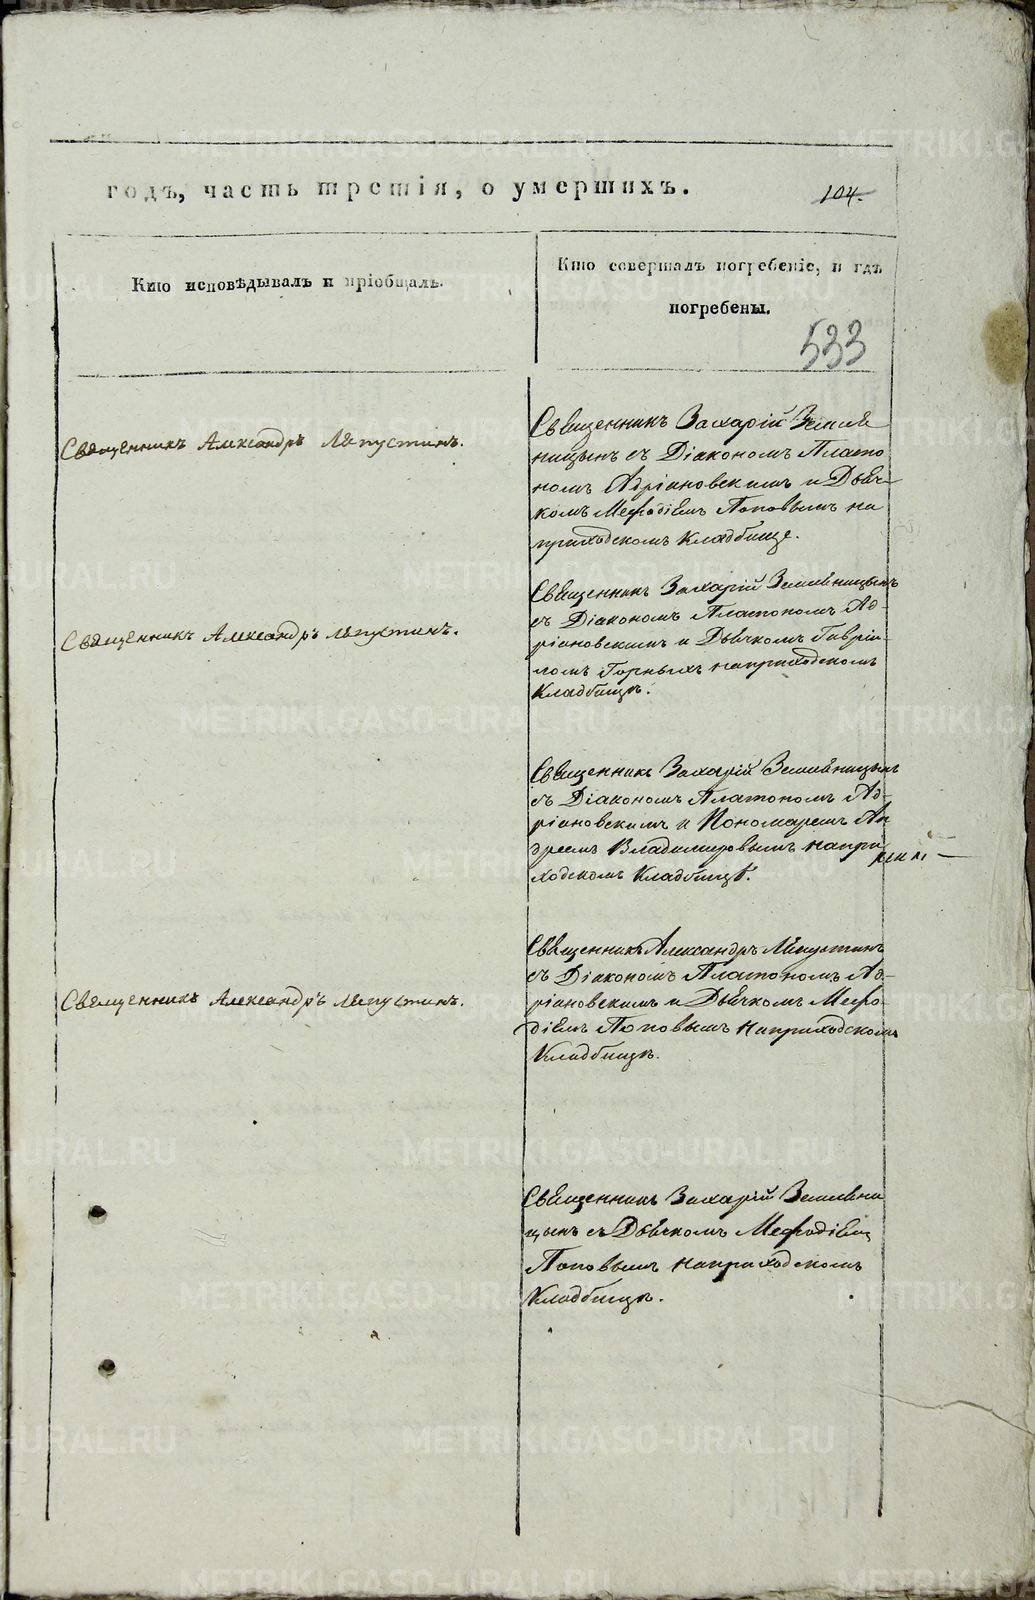 годъ, часть третія, о умершихъ.
104.
Кто исповѣдывалъ и пріобщалъ.
Кто совершалъ погребеніе, и гдѣ
погребены.
533
Священникъ Александръ Лепустинъ.
Священникъ Захарій Землѣ
ницынъ съ Діакономъ Плато
номъ Адріановскимъ и Дьяч-
комъ Мефодіемъ Поповымъ на
приходскомъ кладбище.
Священникъ Александръ Лепустинъ.
Священникъ Захарій Землѣницынъ
съ Діакономъ Платономъ Ад-
ріановскимъ и Дьячкомъ Гаврі
ломъ Горныхъ наприходскомъ
Кладбищѣ.
Священникъ Захарій Землѣницынъ
съ Діакономъ Платономъ Ад-
ріановскимъ и Пономаремъ Ан
дреемъ Владимировымъ напри
ходскомъ Кладбищѣ.
Священникъ Александръ Лепустинъ.
Священникъ Александръ Лепустинъ
съ Діакономъ Платономъ Ад-
ріановскимъ и Дьячкомъ Мефо
діемъ Поповымъ наприходскомъ
Кладбищѣ.
Священникъ Захарій Землѣни
цынъ съ Дьячкомъ Мефодіемъ
Поповымъ наприходскомъ
Кладбищѣ.
METRIKI.GASO-URAL.RU